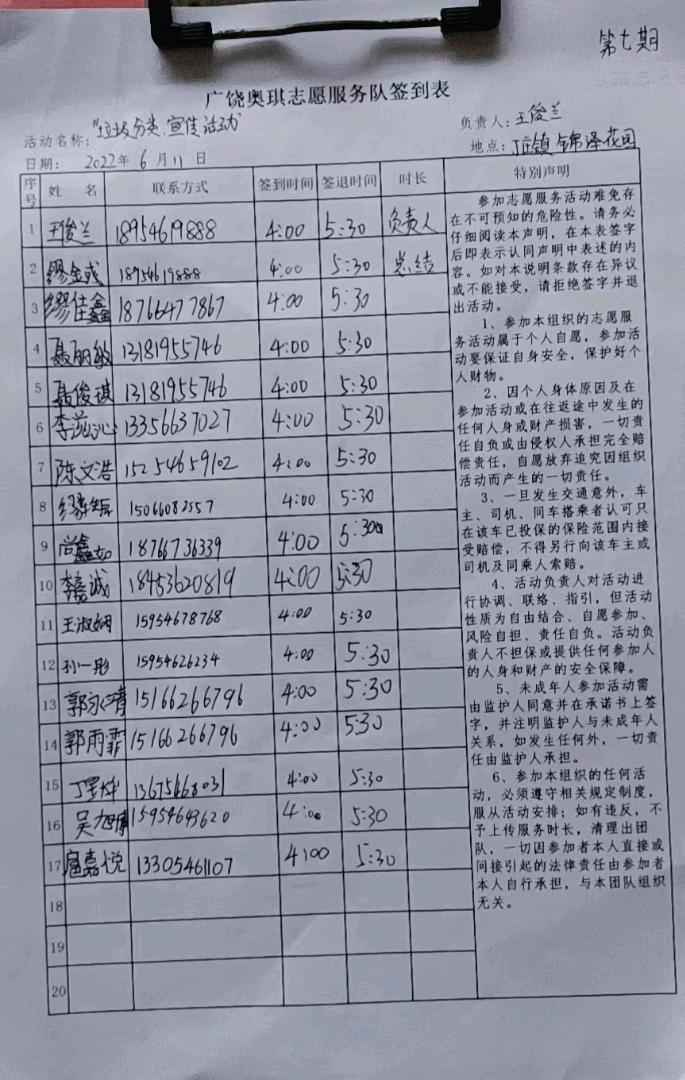 第七期
广饶奥琪志愿服务队签到表
活动名称："垃圾分类.宣传活动"
负责人：王俊兰
日期： 2022年 6 月 11 日
地点：丁庄镇锦泽花园
序号 姓 名 联系方式 签到时间 签退时间 时长 特别声明
1 王俊兰 18954619888 4:00 5:30 负责人
2 缪金成 18954619888 4:00 5:30 总结
3 缪佳鑫 18766477867 4:00 5:30
4 聂丽敏 13181955746 4:00 5:30
5 聂俊祺 13181955746 4:00 5:30
6 李滋沁 13356637027 4:00 5:30
7 陈文浩 15254659102 4:00 5:30
8 15066082557 4:00 5:30
9 尚鑫如 18766736339 4:00 5:30
10 李嘉诚 18453620819 4:00 5:30
11 王淑娴 15954678768 4:00 5:30
12 孙一彤 15954626234 4:00 5:30
13 郭永清 15166266796 4:00 5:30
14 郭雨霏 15166266796 4:00 5:30
15 13675468031 4:00 5:30
16 吴旭博 15954643620 4:00 5:30
17 扈嘉悦 13305461107 4:00 5:30
18
19
20
参加志愿服务活动难免存
在不可预知的危险性。请务必
仔细阅读本声明，在本表签字
后即表示认同声明中表述的内
容。如对本说明条款存在异议
或不能接受，请拒绝签字并退
出活动。
1、参加本组织的志愿服
务活动属于个人自愿，参加活
动要保证自身安全，保护好个
人财物。
2、因个人身体原因及在
参加活动或在往返途中发生的
任何人身或财产损害，一切责
任自负或由侵权人承担完全赔
偿责任，自愿放弃追究因组织
活动而产生的一切责任。
3、一旦发生交通意外，车
主、司机、同车搭乘者认可只
在该车已投保的保险范围内接
受赔偿，不得另行向该车主或
司机及同乘人索赔。
4、活动负责人对活动进
行协调、联络、指引，但活动
性质为自由结合、自愿参加、
风险自担、责任自负。活动负
责人不担保或提供任何参加人
的人身和财产的安全保障。
5、未成年人参加活动需
由监护人同意并在承诺书上签
字，并注明监护人与未成年人
关系，如发生任何外，一切责
任由监护人承担。
6、参加本组织的任何活
动，必须遵守相关规定制度，
服从活动安排；如有违反，不
予上传服务时长，清理出团
队，一切因参加者本人直接或
间接引起的法律责任由参加者
本人自行承担，与本团队组织
无关。